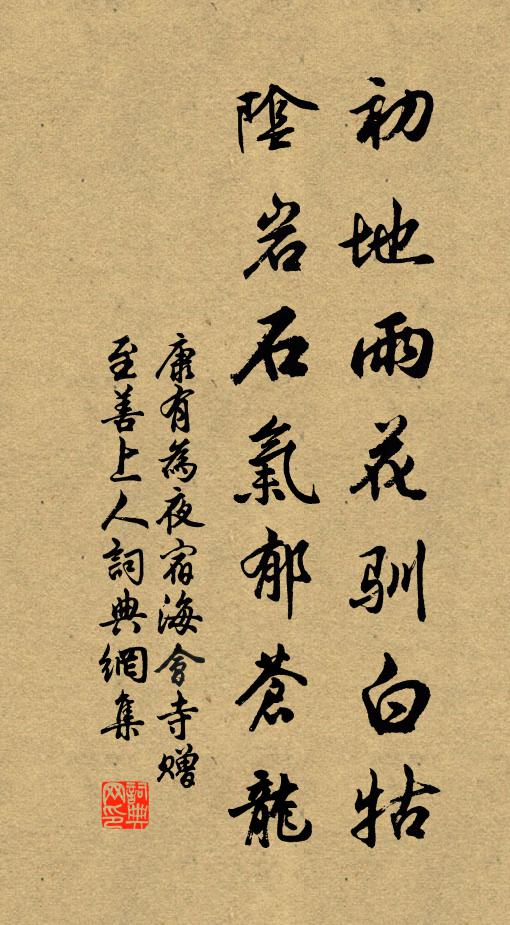 初地雨花馴白牯
陰岩石氣郁蒼龍
康有為夜宿海會寺贈
至善上人詞典網集
詞典
网印